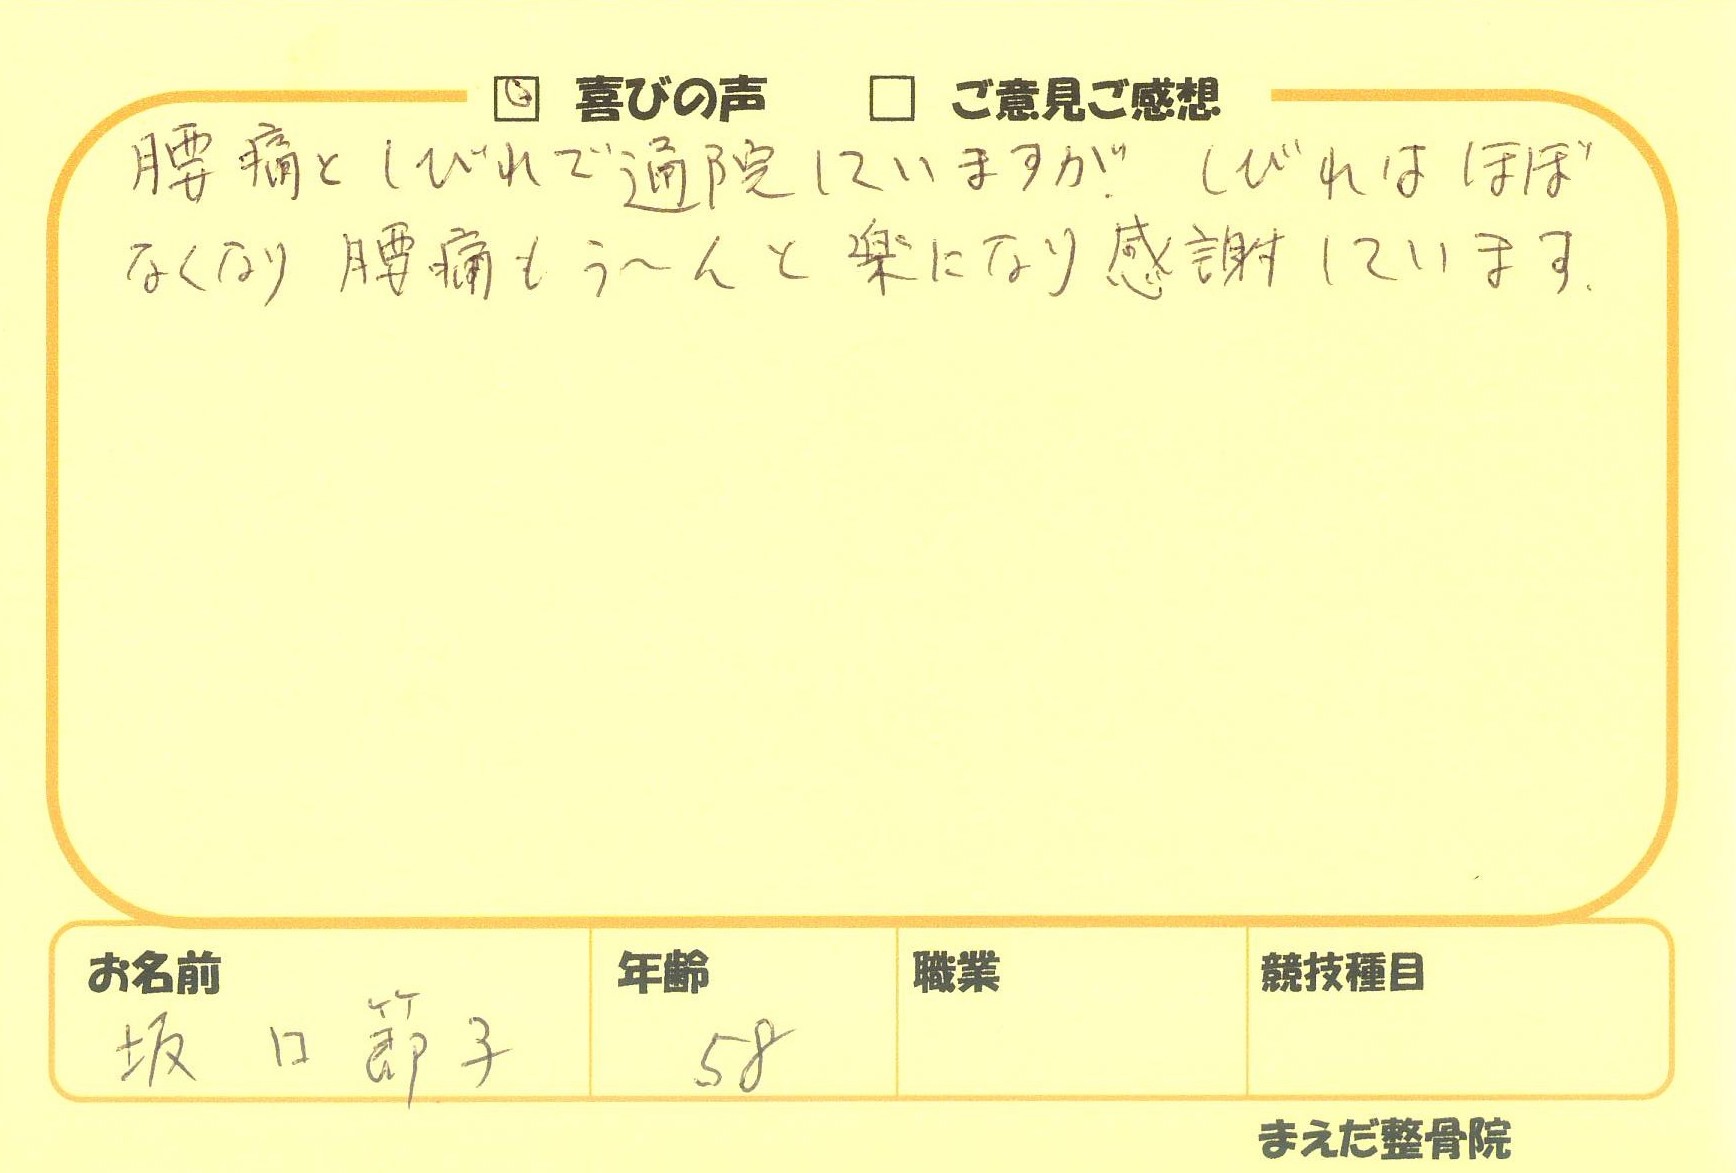 喜びの声 ご意見ご感想
腰痛としびれで通院していますが、しびれはほぼ
なくなり腰痛もう〜んと楽になり感謝しています.
お名前 年齢 職業 競技種目
坂口節子 58
まえだ整骨院